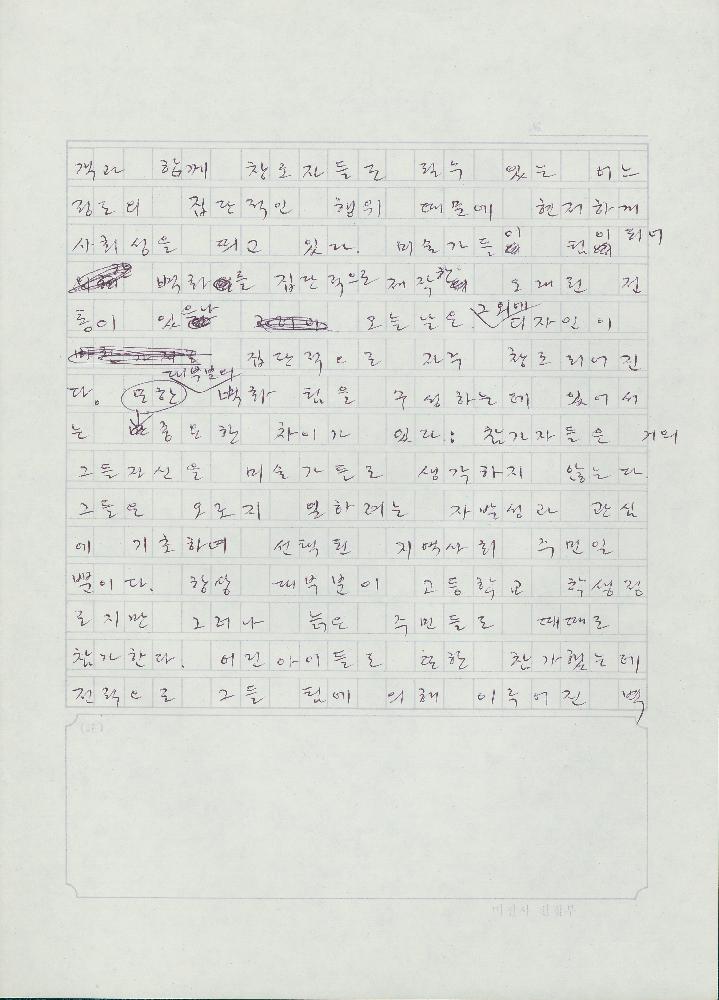 객과 함께 창조자들로 될수 있는 어느
정도의 집단적인 행위 때문에 현저하게
사회성을 띄고 있다. 미술가들이 팀이 되어
벽화를 집단적으로 제작한 오래된 전
통이 있으나 오늘날은 그 외에 디자인이
집단적으로 자주 창조되어진
다. 또한 대부분의 벽화 팀을 구성하는데 있어서
는 중요한 차이가 있다: 참가자들은 거의
그들자신을 미술가들로 생각하지 않는다.
그들은 오로지 일하려는 자발성과 관심
에 기초하여 선택된 지역사회 주민일
뿐이다. 항상 대부분이 고등학교 학생정
도지만 그러나 늙은 주민들도 때때로
참가한다. 어린아이들도 또한 참가했는데
전적으로 그들 팀에 의해 이루어진 벽